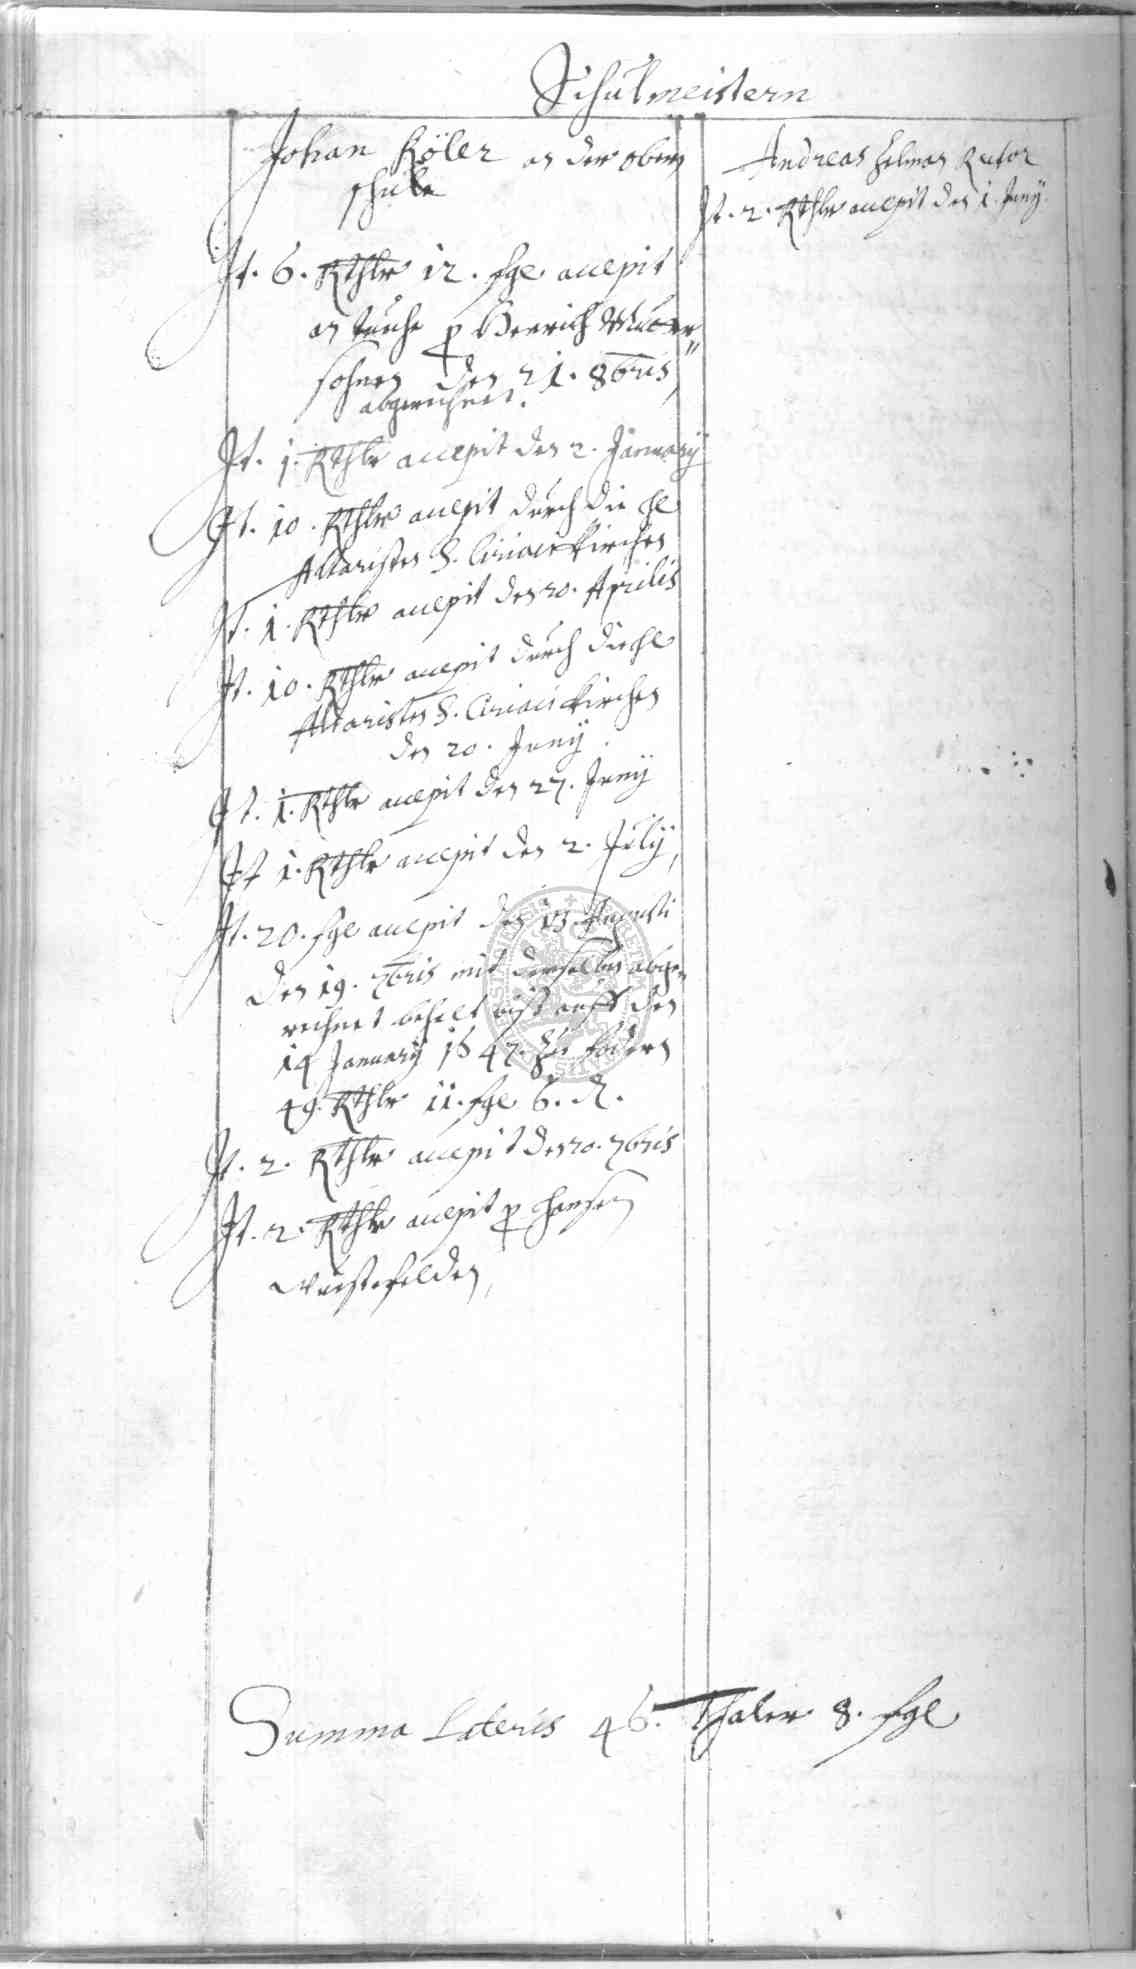 Schulmeistern
Johan Köler an der obern
schule
It. 6. Rthlr 12. sgl accepit
an tuche p Henrich
sohnen den 21. 8bris
abgerechnet.
It. 1. Rthlr accepit den 2. January
It. 10. Rthlr accepit durch die hl
Altaristen S. Ciriaci kirchen
It. 1. Rthlr accepit den 20. Aprilis
It. 10. Rthlr accepit durch die hl
Altaristen S. Ciriaci kirchen
den 20. Juny
It. 1. Rthlr accepit den 27. Juny
It 1. Rthlr accepit den 2. July
It. 20. sgl accepit den 13. Augusti
Den 19. 7bris mit demselben abge-
rechnet behelt bist auff den
14 January 1647. zu fodern
49. Rthlr 11. sgl 6. d.
It. 2. Rthlr accepit den 20. 7bris
It. 2. Rthlr accepit p Hansen
Wüstefelden
Andreas Helman Rector
It. 2. Rthlr accepit den 1. Juny
Summa Lateris 46. Thaler 8. sgl